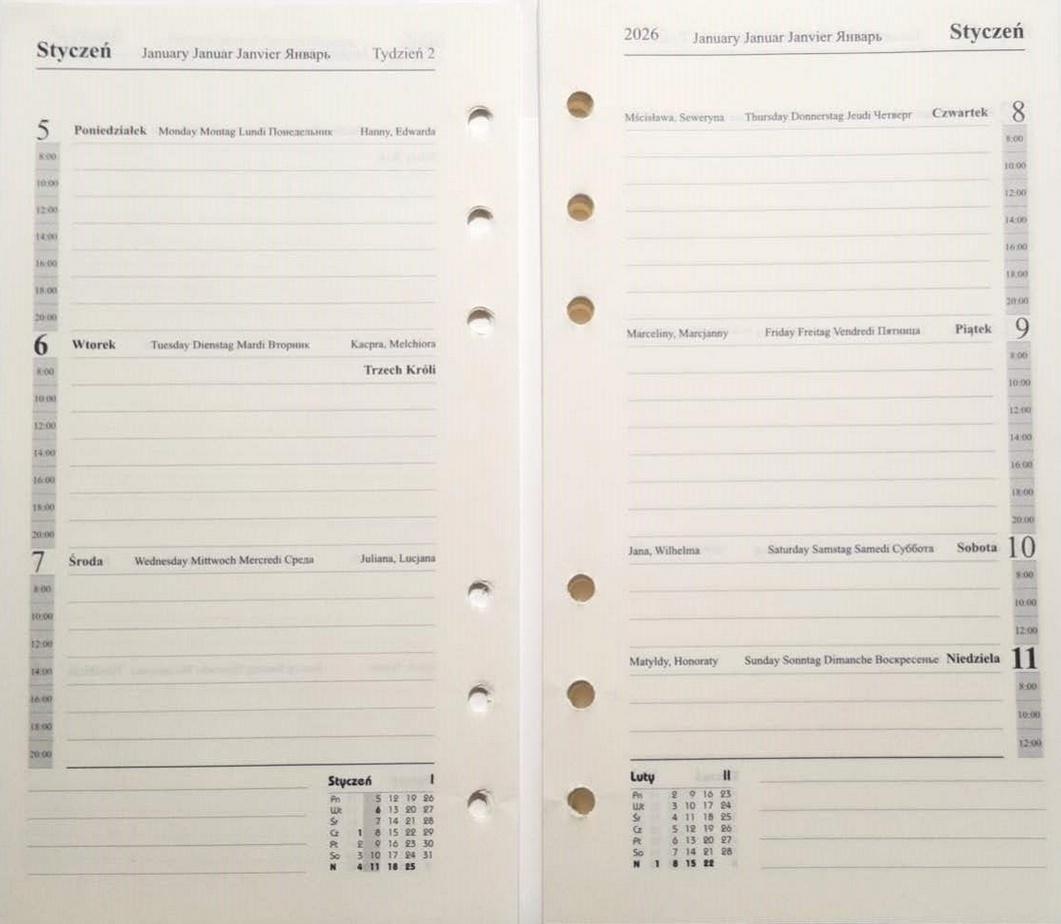 Styczeń January Januar Janvier Январь Tydzień 2
5 Poniedziałek Monday Montag Lundi Понедельник Hanny, Edwarda
8:00
10:00
12:00
14:00
16:00
18:00
20:00
6 Wtorek Tuesday Dienstag Mardi Вторник Kacpra, Melchiora
8:00 Trzech Króli
10:00
12:00
14:00
16:00
18:00
20:00
7 Środa Wednesday Mittwoch Mercredi Среда Juliana, Lucjana
8:00
10:00
12:00
14:00
16:00
18:00
20:00
Styczeń I
Pn 5 12 19 26
Wt 6 13 20 27
Śr 7 14 21 28
Cz 1 8 15 22 29
Pt 2 9 16 23 30
So 3 10 17 24 31
N 4 11 18 25
2026 January Januar Janvier Январь Styczeń
Mścisława, Seweryna Thursday Donnerstag Jeudi Четверг Czwartek 8
8:00
10:00
12:00
14:00
16:00
18:00
20:00
Marceliny, Marcjanny Friday Freitag Vendredi Пятница Piątek 9
8:00
10:00
12:00
14:00
16:00
18:00
20:00
Jana, Wilhelma Saturday Samstag Samedi Суббота Sobota 10
8:00
10:00
12:00
Matyldy, Honoraty Sunday Sonntag Dimanche Воскресенье Niedziela 11
8:00
10:00
12:00
Luty II
Pn 2 9 16 23
Wt 3 10 17 24
Śr 4 11 18 25
Cz 5 12 19 26
Pt 6 13 20 27
So 7 14 21 28
N 1 8 15 22